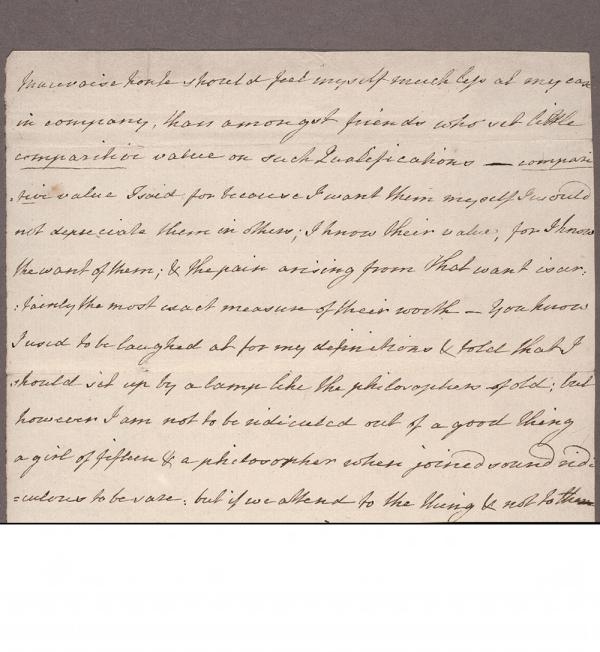 Mauvaise honte should feel myself much less at my ease
in company, than amongst friends who set little
comparitive value on such Qualifications — compari
:tive value I said for because I want them myself I would
not depreciate them in others; I know their value, for I know
the want of them; & the pain arising from that want is cer:
:tainly the most exact measure of their worth — You know
I used to be laughed at for my definitions & told that I
should set up by a lamp like the philosophers of old; but
however I am not to be ridiculed out of a good thing
a girl of fifteen & a philosopher when joined sound ridi
=culous to be sure: but if we attend to the thing & not to